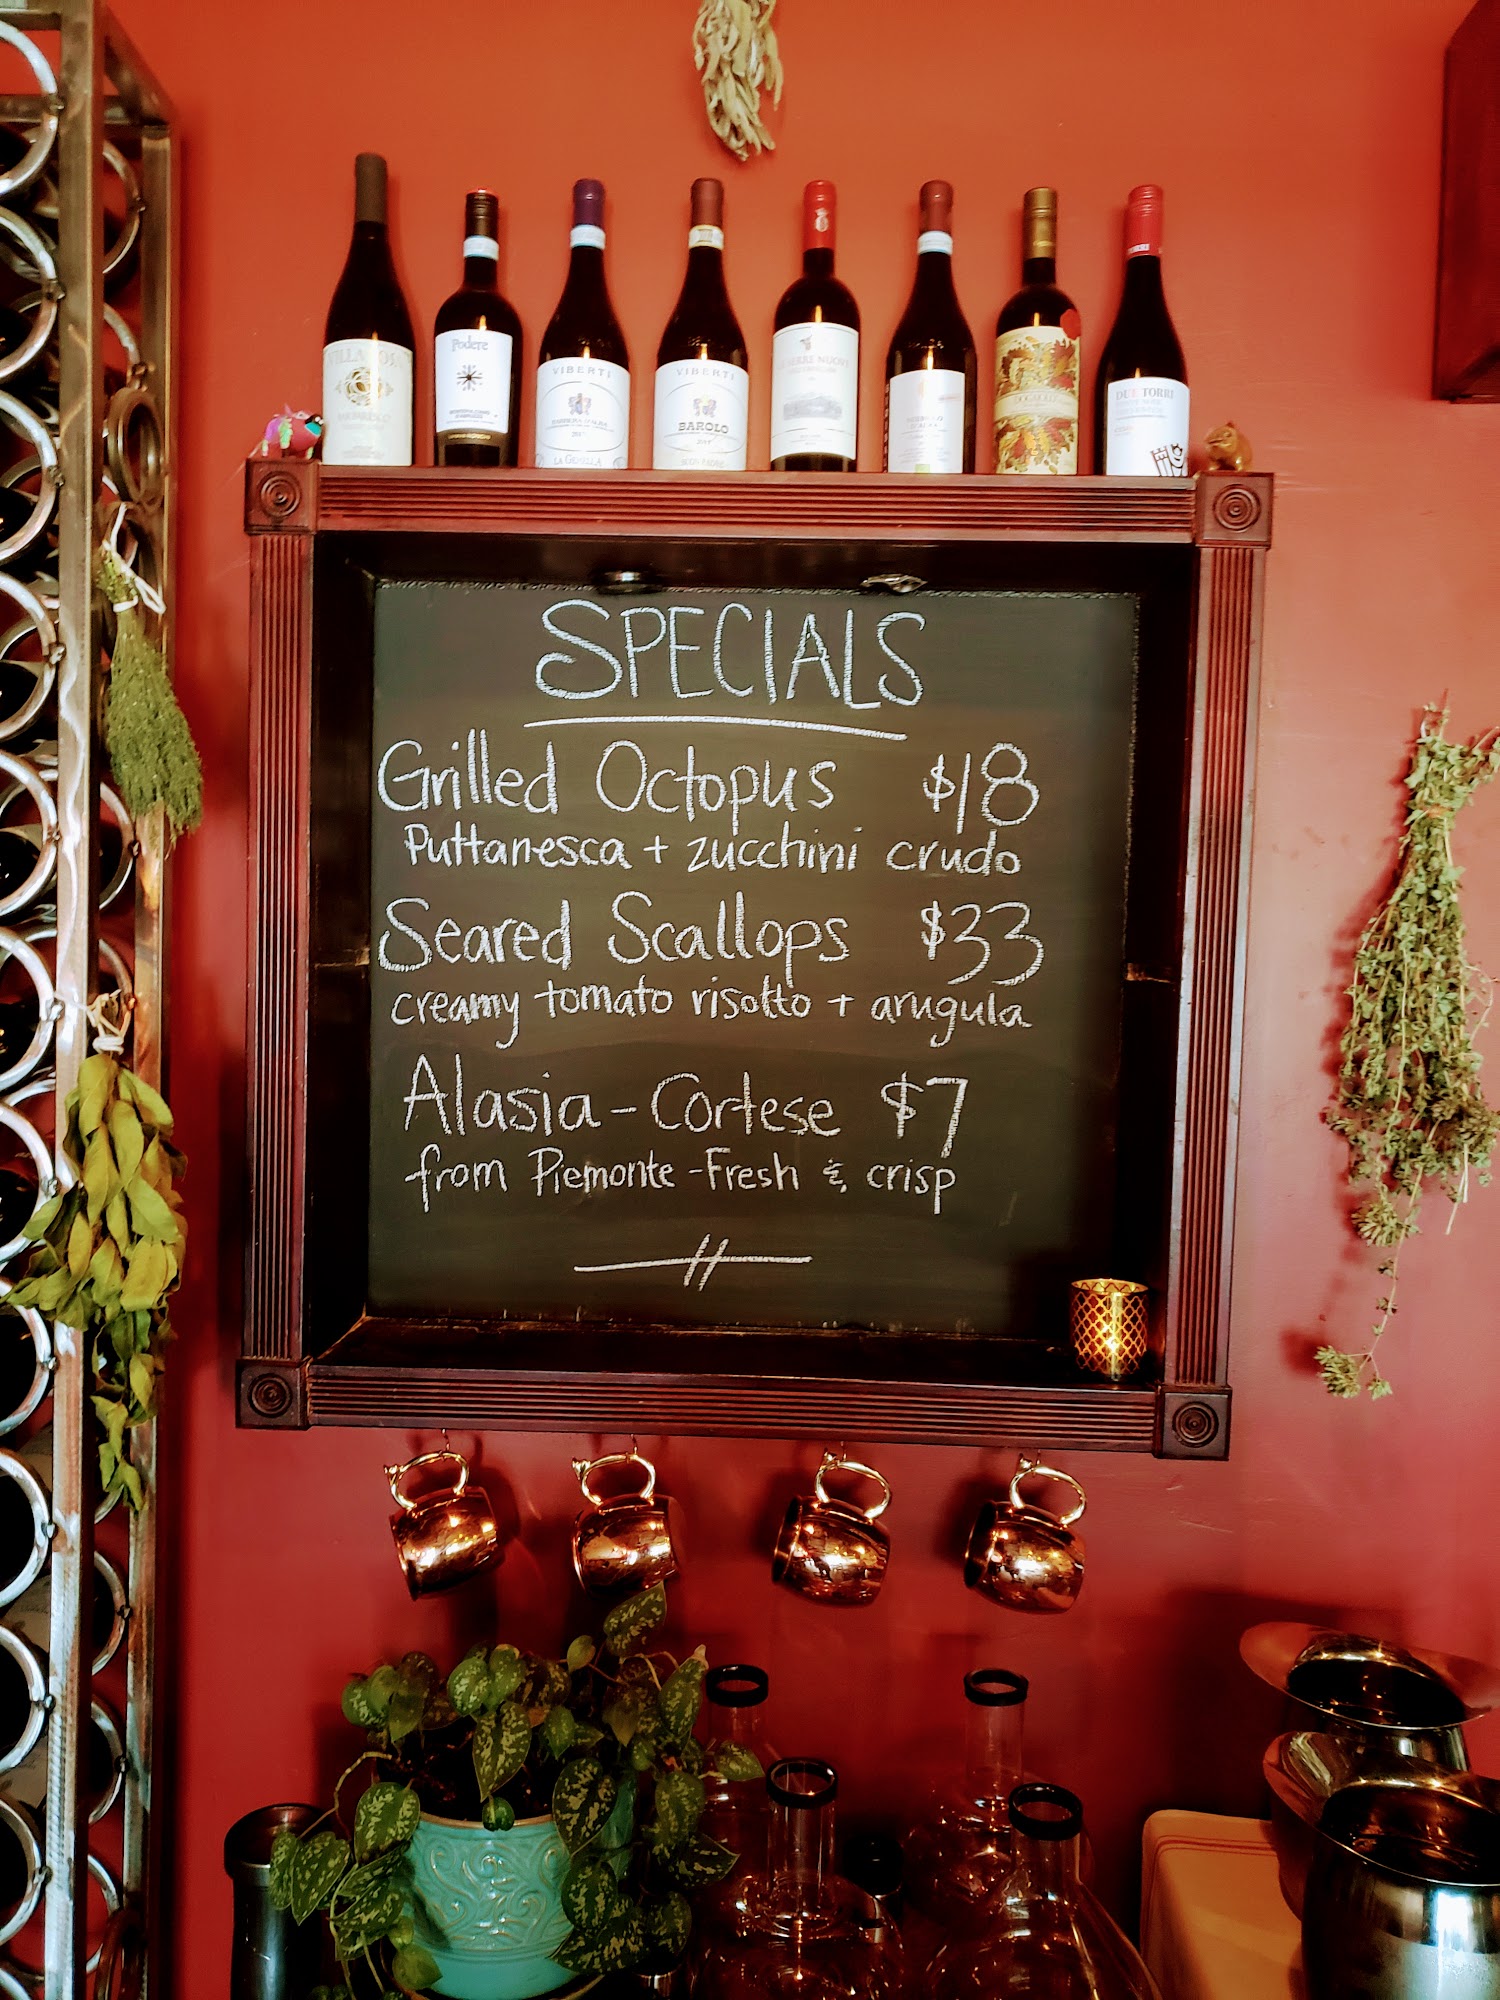 VILLA
BARBARESCO
Podere
MONTEPULCIANO
D'ABRUZZO
VIBERTI
BARBERA D'ALBA
2017
LA GEMELLA
VIBERTI
BAROLO
2014
DUE TORRI
SPECIALS
Grilled Octopus $18
Puttanesca + zucchini crudo
Seared Scallops $33
creamy tomato risotto + arugula
Alasia - Cortese $7
from Piemonte - Fresh & crisp